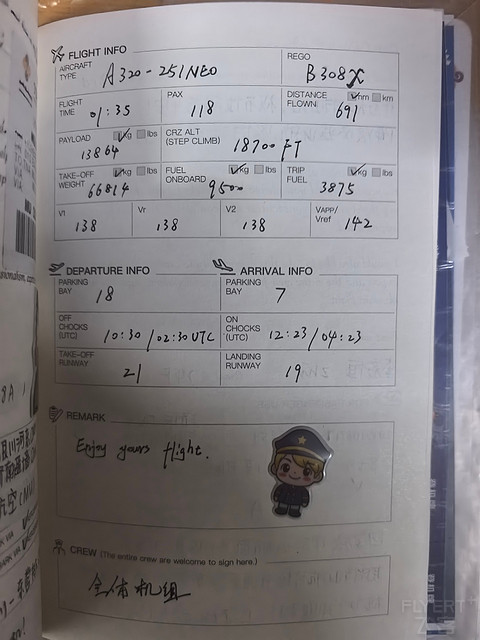 FLIGHT INFO
AIRCRAFT TYPE A320-251NEO REGO B308X
FLIGHT TIME 01:35 PAX 118 DISTANCE FLOWN nm km 691
PAYLOAD kg lbs 13864 CRZ ALT (STEP CLIMB) 18700 FT
TAKE-OFF WEIGHT kg lbs 66814 FUEL ONBOARD kg lbs 9500 TRIP FUEL kg lbs 3875
V1 138 Vr 138 V2 138 VAPP/Vref 142
DEPARTURE INFO ARRIVAL INFO
PARKING BAY 18 PARKING BAY 7
OFF CHOCKS (UTC) 10:30/02:30UTC ON CHOCKS (UTC) 12:23/04:23
TAKE-OFF RUNWAY 21 LANDING RUNWAY 19
REMARK
Enjoy yours flight.
CREW (The entire crew are welcome to sign here.)
全体机组
FLYERT